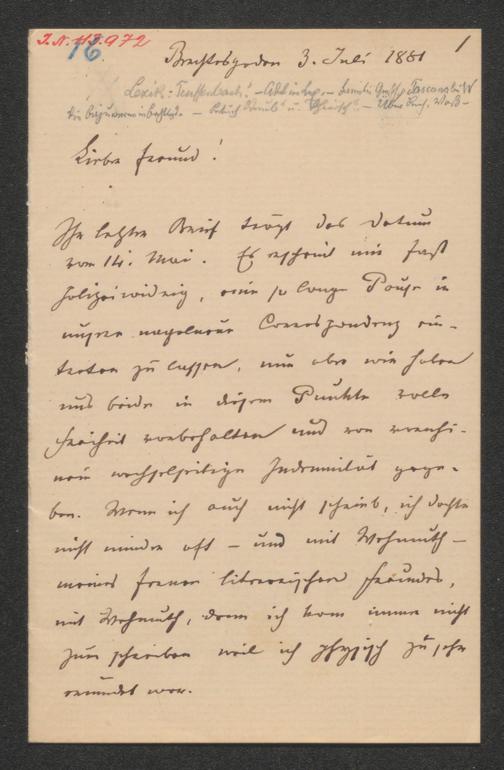 I.N. 113.972
16
1
Berchtesgaden 3. Juli 1881
Lieber Freund!
Ihr letzter Brief trägt das Datum
vom 14. Mai. Es erscheint mir fast
polizeiwidrig, eine so lange Pause in
unsere Correspondenz ein-
treten zu lassen, nun aber wir haben
uns beide in diesem Punkte volle
Freiheit vorbehalten und von
wechselseitige Indemnität gege-
ben. Wenn ich auch nicht schrieb, ich dachte
nicht minder oft – und mit Wehmuth –
meines fernen literarischen Freundes,
mit Wehmuth, denn ich kam immer nicht
zum schreiben weil ich physisch zu sehr
ermüdet war.